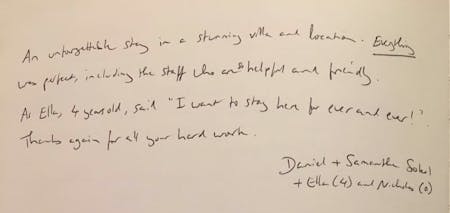 An unforgettable stay in a stunning villa and location. Everything
was perfect, including the staff who are helpful and friendly.
As Ella, 4 years old, said "I want to stay here for ever and ever!".
Thanks again for all your hard work.
Daniel + Samantha
+ Ella (4) and Nicholas (0)